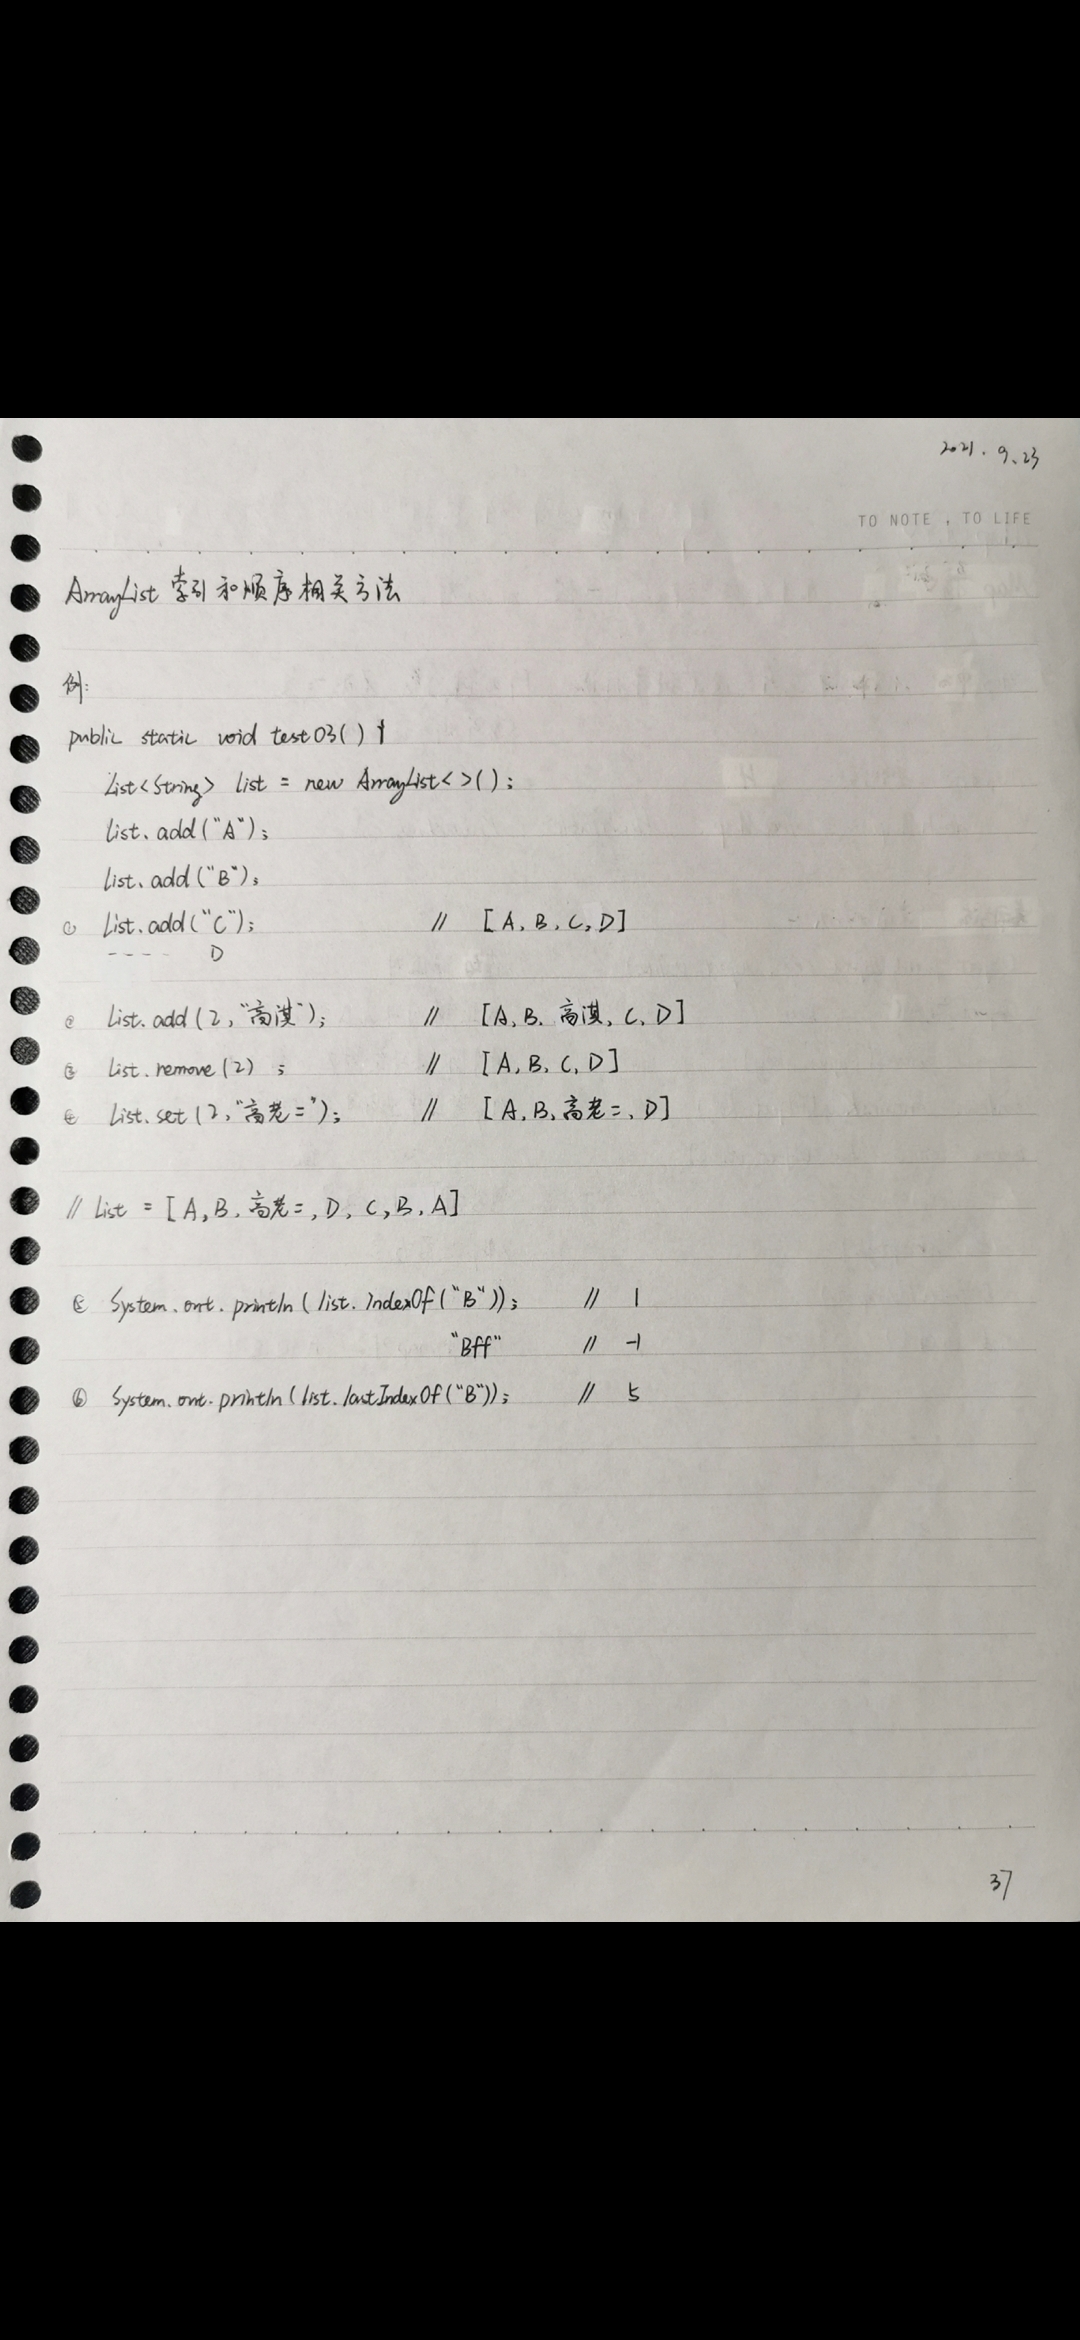 2021.9.23
TO NOTE , TO LIFE
ArrayList 索引和顺序相关方法
例:
public static void test03() {
List<String> list = new ArrayList<>();
list.add("A");
list.add("B");
① list.add("C"); // [A, B, C, D]
---- D
② list.add(2, "高淇"); // [A, B, 高淇, C, D]
③ list.remove(2) ; // [A, B, C, D]
④ list.set(2, "高老二"); // [A, B, 高老二, D]
// list = [A, B, 高老二, D, C, B, A]
⑤ System.out.println(list.indexOf("B")); // 1
"Bff" // -1
⑥ System.out.println(list.lastIndexOf("B")); // 5
37